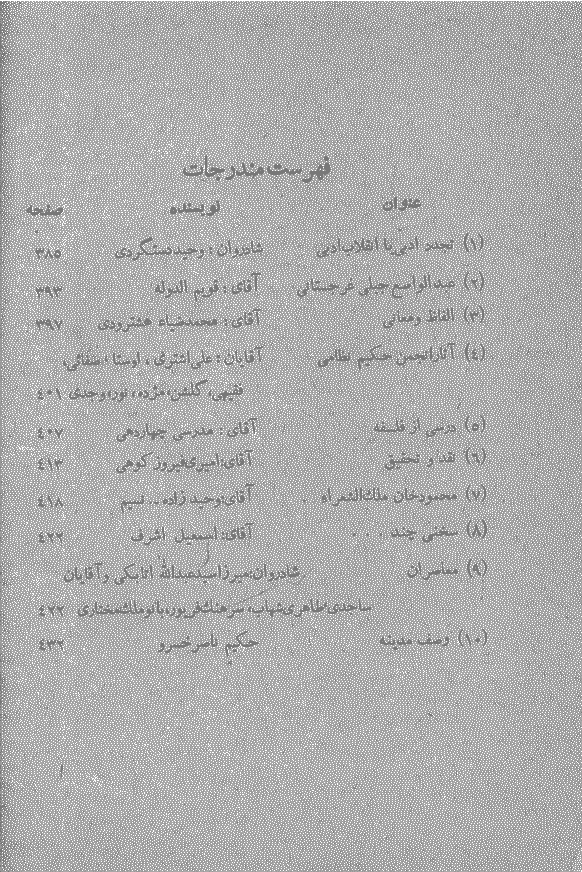 فهرست مندرجات
عنوان نویسنده صفحه
(۱) تجدد ادبی یا انقلاب ادبی شادروان : وحید دستگردی ۳۸۵
(۲) عبدالواسع جبلی غرجستانی آقای : قویم الدوله ۳۹۳
(۳) الفاظ و معانی آقای : محمد ضیاء هشترودی ۳۹۷
(٤) آثار انجمن حکیم نظامی آقایان : علی اشتری ، اوستا ، سفائی،
فقیهی، گلشن، مژده، نور، وجدی ٤۰۱
(۵) درسی از فلسفه آقای : مدرسی چهاردهی ٤۰۷
(٦) نقد و تحقیق آقای: امیری فیروز کوهی ٤۱۳
(۷) محمودخان ملك الشعراء آقای: وحید زاده ـ نسیم ٤۱۸
(۸) سخنی چند . . . آقای: اسمعیل اشرف ٤۲۲
(۹) معاصران شادروان: میرزا سید عبدالله اتابکی و آقایان
ساجدی، طاهری شهاب، سرهنك فریور، بانو ملك مختاری ٤۲۲
(۱۰) وصف مدینه حکیم ناصر خسرو ٤۳۲